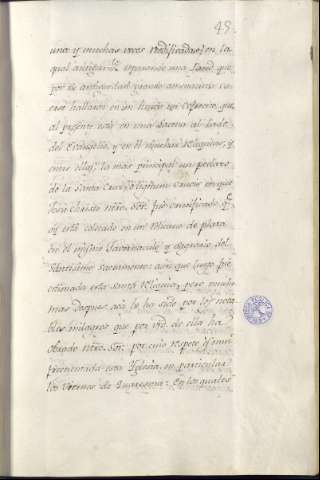 45
una y muchas veces reedificadas; en la
qual antigue. reparando una Pared, que
por su antiguedad grande amenazaba ca
erse hallaron en un hueco un cofrecito, que
al presente está en una Sacena al lado
del Evangelio, y en él muchas Reliquias, y
entre ellas, la mas principal un pedazo
de la Santa Cruz, ó lignum crucis en que
Jesu Christo ntro. Sor. fue crucificado, qe.
oy está colocado en un Relicario de plata
en el mismo Tavernaculo, y Sagrario del
Santissimo Sacramento: aun que luego fue
estimada esta Santa Reliquia, pero mucho
mas despues acà lo ha sido, por los nota
bles milagros que por vrd. de ella ha
obrado ntro. Sor. por cuio respeto es mui
frecuentada esta Yglesia, en particular
los Viernes de Quaresma: En los quales